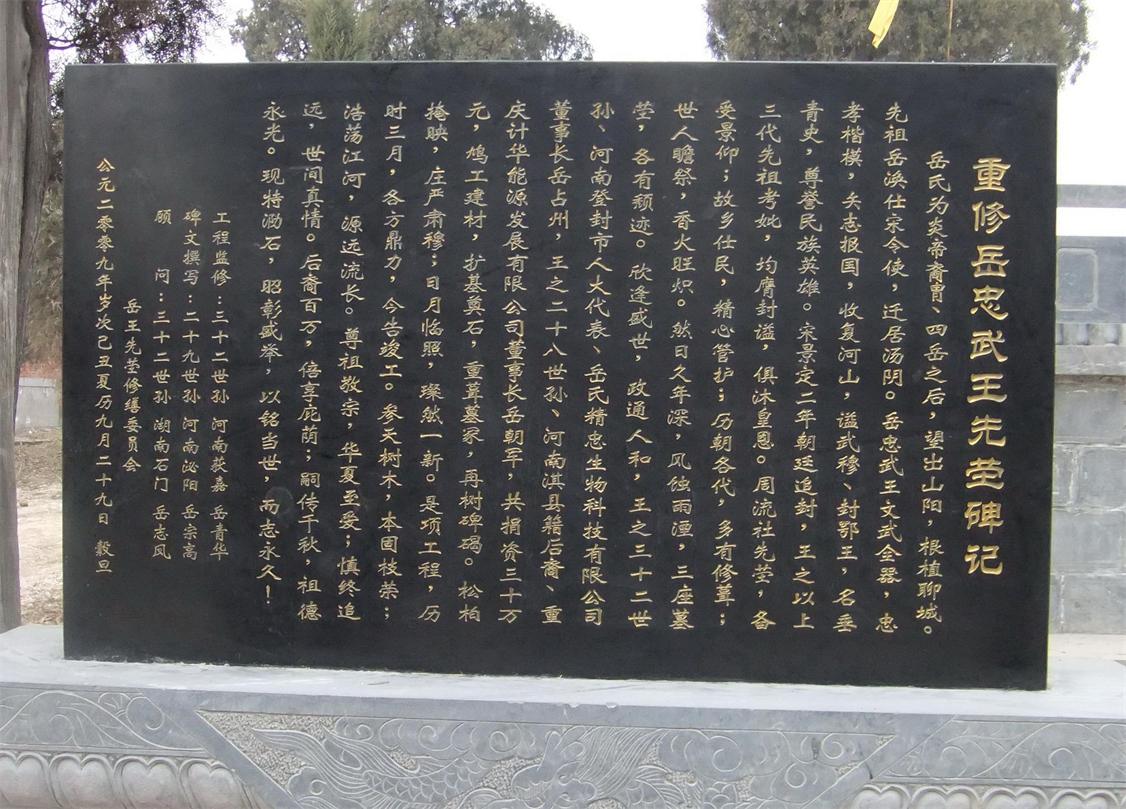 重修岳忠武王先茔碑记
岳氏为炎帝裔胄、四岳之后，望出山阳，根植聊城。
先祖岳涣仕宋令使，迁居汤阴。岳忠武王文武全器，忠
孝楷模，矢志报国，收复河山，谥武穆、封鄂王，名垂
青史，尊誉民族英雄。宋景定二年朝廷追封，王之以上
三代先祖考妣，均膺封谥，俱沐皇恩。周流社先茔，备
受景仰；故乡仕民，精心管护；历朝各代，多有修葺；
世人瞻祭，香火旺炽。然日久年深，风蚀雨湮，三座墓
茔，各有颓迹。欣逢盛世，政通人和，王之三十二世
孙、河南登封市人大代表、岳氏精忠生物科技有限公司
董事长岳占州，王之二十八世孙、河南淇县籍后裔、重
庆计华能源发展有限公司董事长岳朝军，共捐资三十万
元，鸠工建材，扩基奠石，重葺墓冢，再树碑碣。松柏
掩映，庄严肃穆；日月临照，璨然一新。是项工程，历
时三月，各方鼎力，今告竣工。参天树木，本固枝荣；
浩荡江河，源远流长。尊祖敬亲，华夏至爱；慎终追
远，世间真情。后裔百万，倍享庇荫；嗣传千秋，祖德
永光。现特泐石，昭彰盛举，以铭当世，而志永久！
工程监修：三十二世孙 河南获嘉 岳青华
碑文撰写：二十九世孙 河南泌阳 岳宗高
顾 问：三十二世孙 湖南石门 岳志风
岳王先茔修缮委员会
公元二零零九年岁次己丑夏历九月二十九日 穀旦